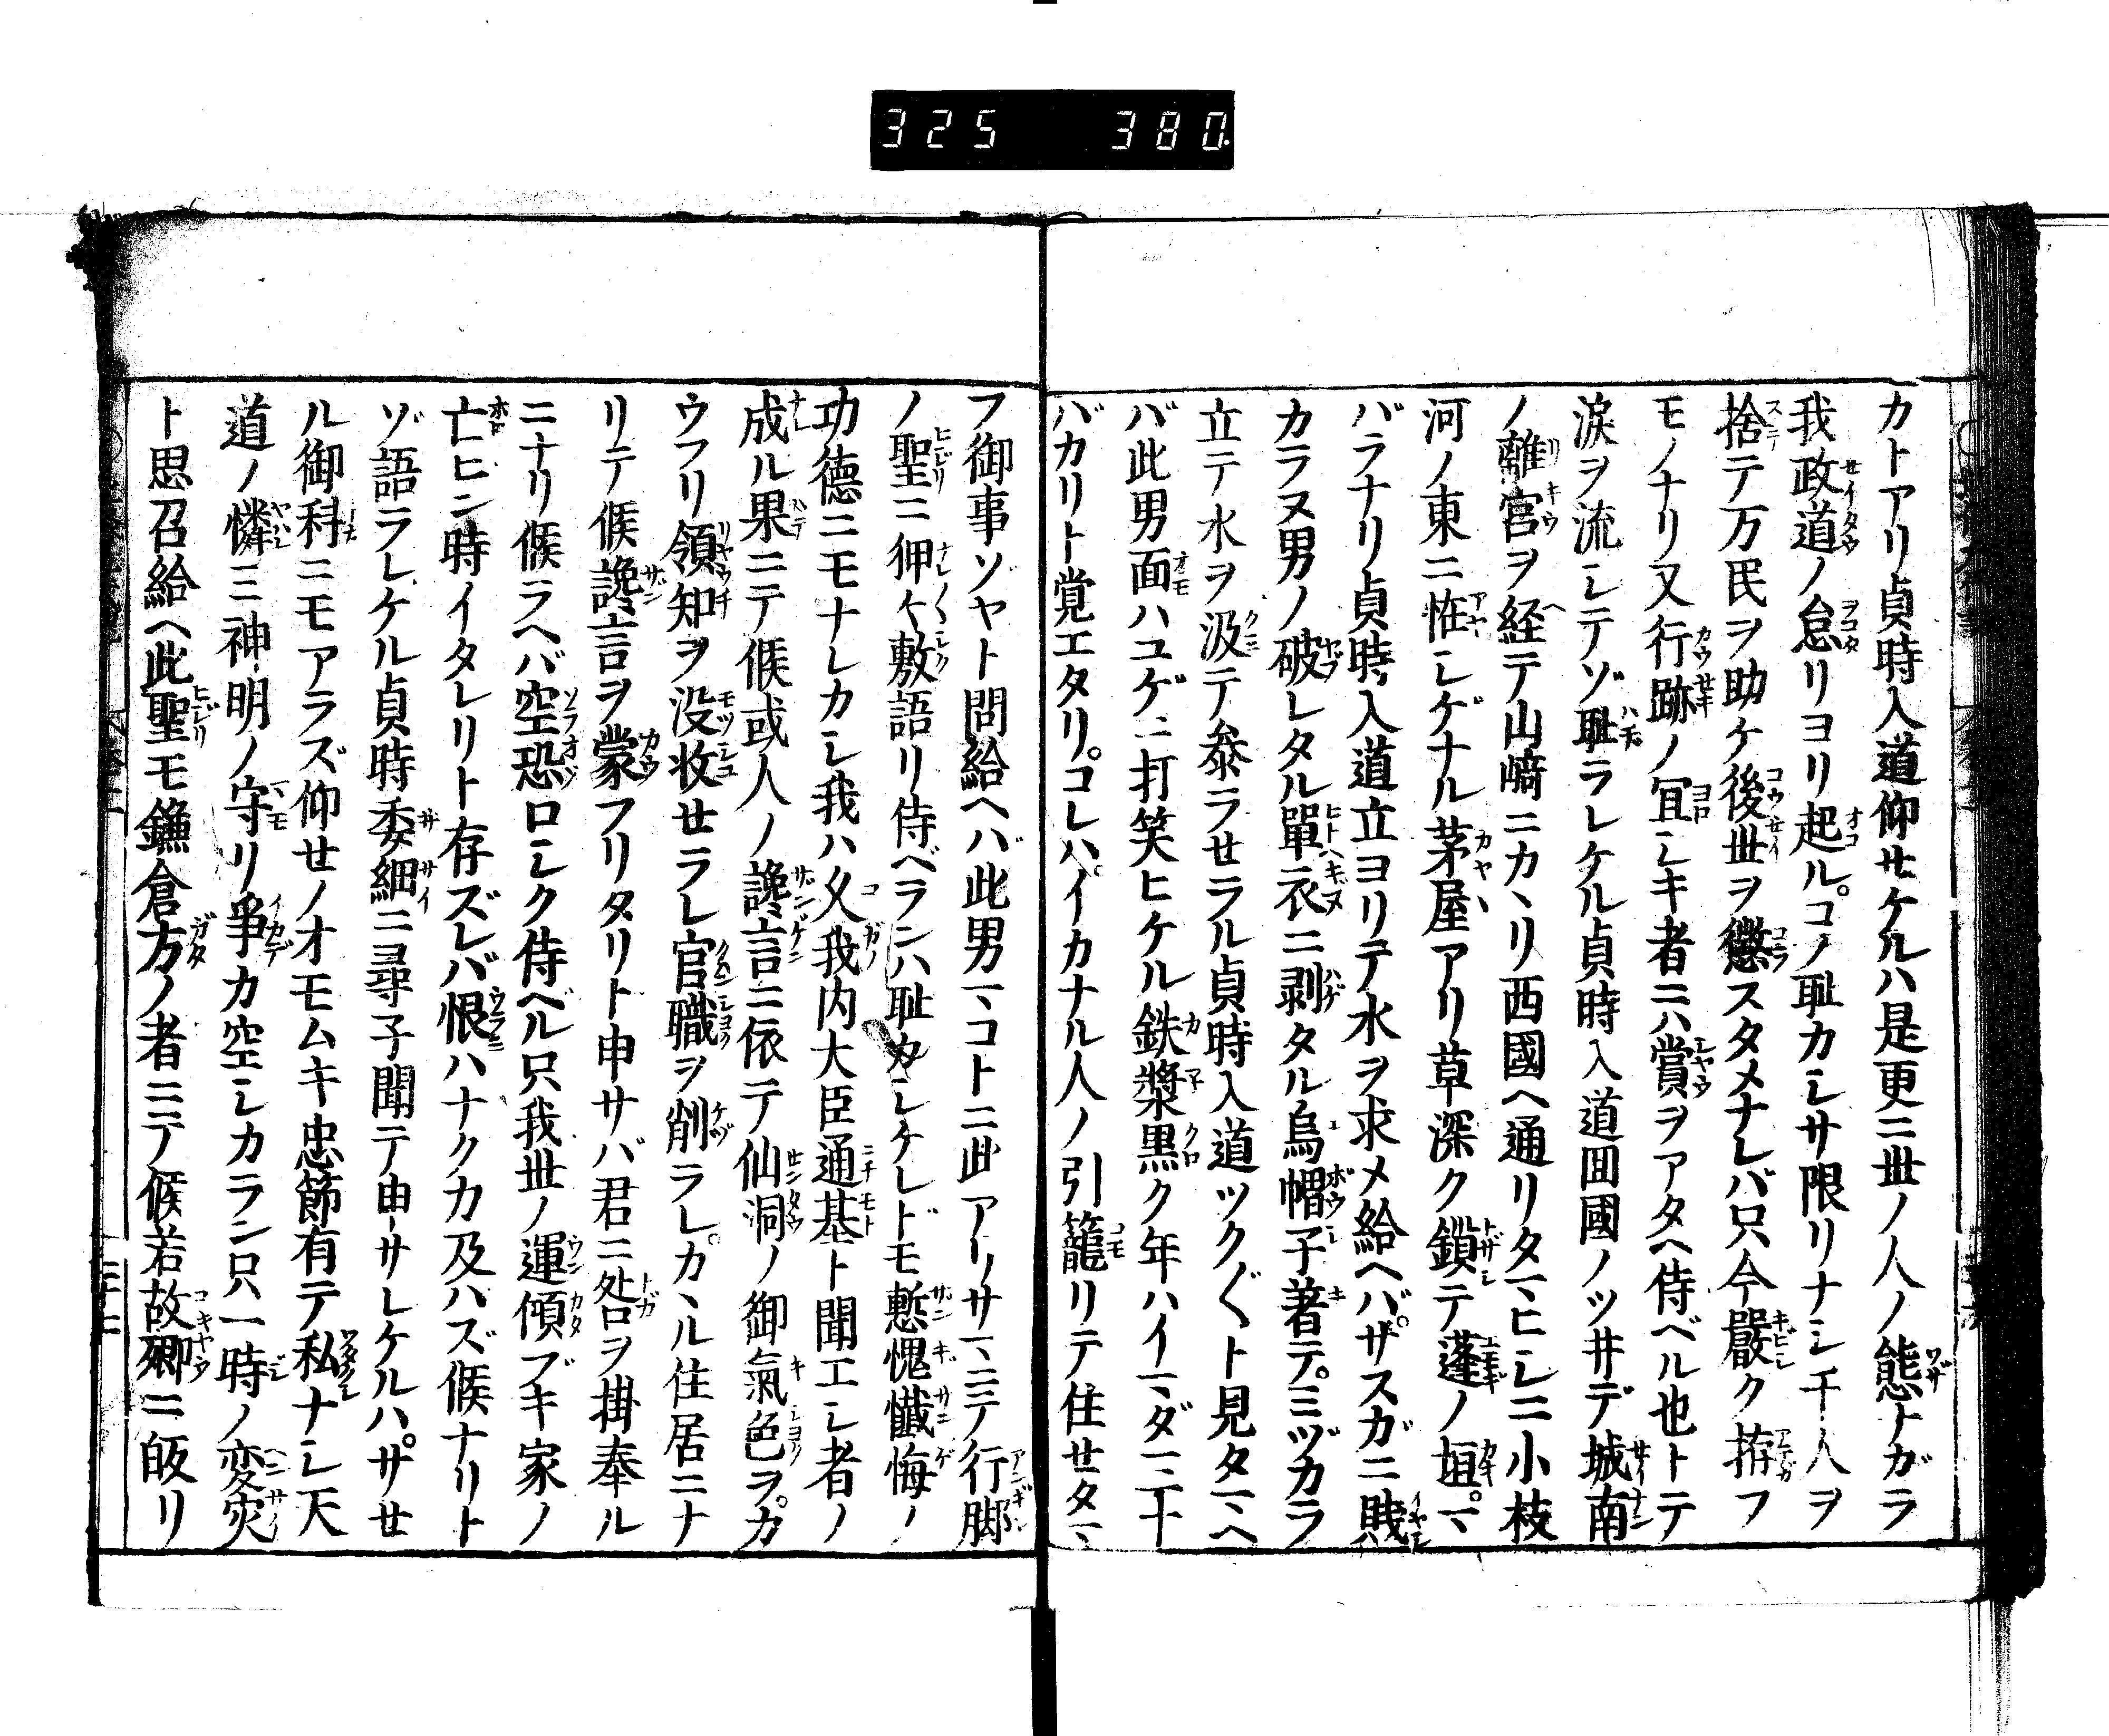 325 380
カトアリ貞時入道仰セケルハ是更ニ世ノ人ノ態ナガラ
我政道ノ怠リヨリ起ル。コノ耻カシサ限リナシ千人ヲ
捨テ万民ヲ助ケ後世ヲ懲スタメナレバ只今嚴ク拵フ
モノナリ又行跡ノ冝シキ者ニハ賞ヲアタヘ侍ベル也トテ
淚ヲ流シテゾ耻ラレケル貞時入道囬國ノツ井デ城南
ノ離宮ヲ経テ山﨑ニカヽリ西國ヘ通リタマヒシニ小枝
河ノ東ニ恠シゲナル茅屋アリ草深ク鎖テ蓬ノ垣。マ
バラナリ貞時入道立ヨリテ水ヲ求メ給ヘバ。サスガニ賎
カラヌ男ノ破レタル單衣ニ剥タル烏帽子著テ。ミヅカラ
立テ水ヲ汲テ叅ラセラル貞時入道ツク〲ト見タマヘ
バ此男面ハユゲニ打笑ヒケル鉄漿黒ク年ハイマダ三十
バカリト覚エタリ。コレハ。イカナル人ノ引籠リテ住セタマ
フ御事ゾヤト問給ヘバ此男マコトニ此アリサマニテ行脚
ノ聖ニ狎々敷語リ侍ベランハ耻カシケレドモ慙愧懺悔ノ
功徳ニモナレカシ我ハ久我内大臣通基ト聞エシ者ノ
成ル果ニテ候或人ノ讒言ニ依テ仙洞ノ御氣色ヲ。カ
ウフリ領知ヲ没收セラレ官職ヲ削ラレ。カヽル住居ニナ
リテ候讒言ヲ蒙フリタリト申サバ君ニ咎ヲ掛奉ル
ニナリ候ヘバ空恐ロシク侍ベル只我世ノ運傾ブキ家ノ
亡ヒン時イタレリト存ズレバ恨ハナクカ及ハズ候ナリト
ゾ語ラレケル貞時委細ニ尋子聞テ申サレケルハ。サセ
ル御科ニモアラズ仰セノオモムキ忠節有テ私ナシ天
道ノ憐ミ神明ノ守リ爭カ空シカラン只一時ノ変灾
ト思召給ヘ此聖モ鎌倉方ノ者ニテ候若故郷ニ皈リ